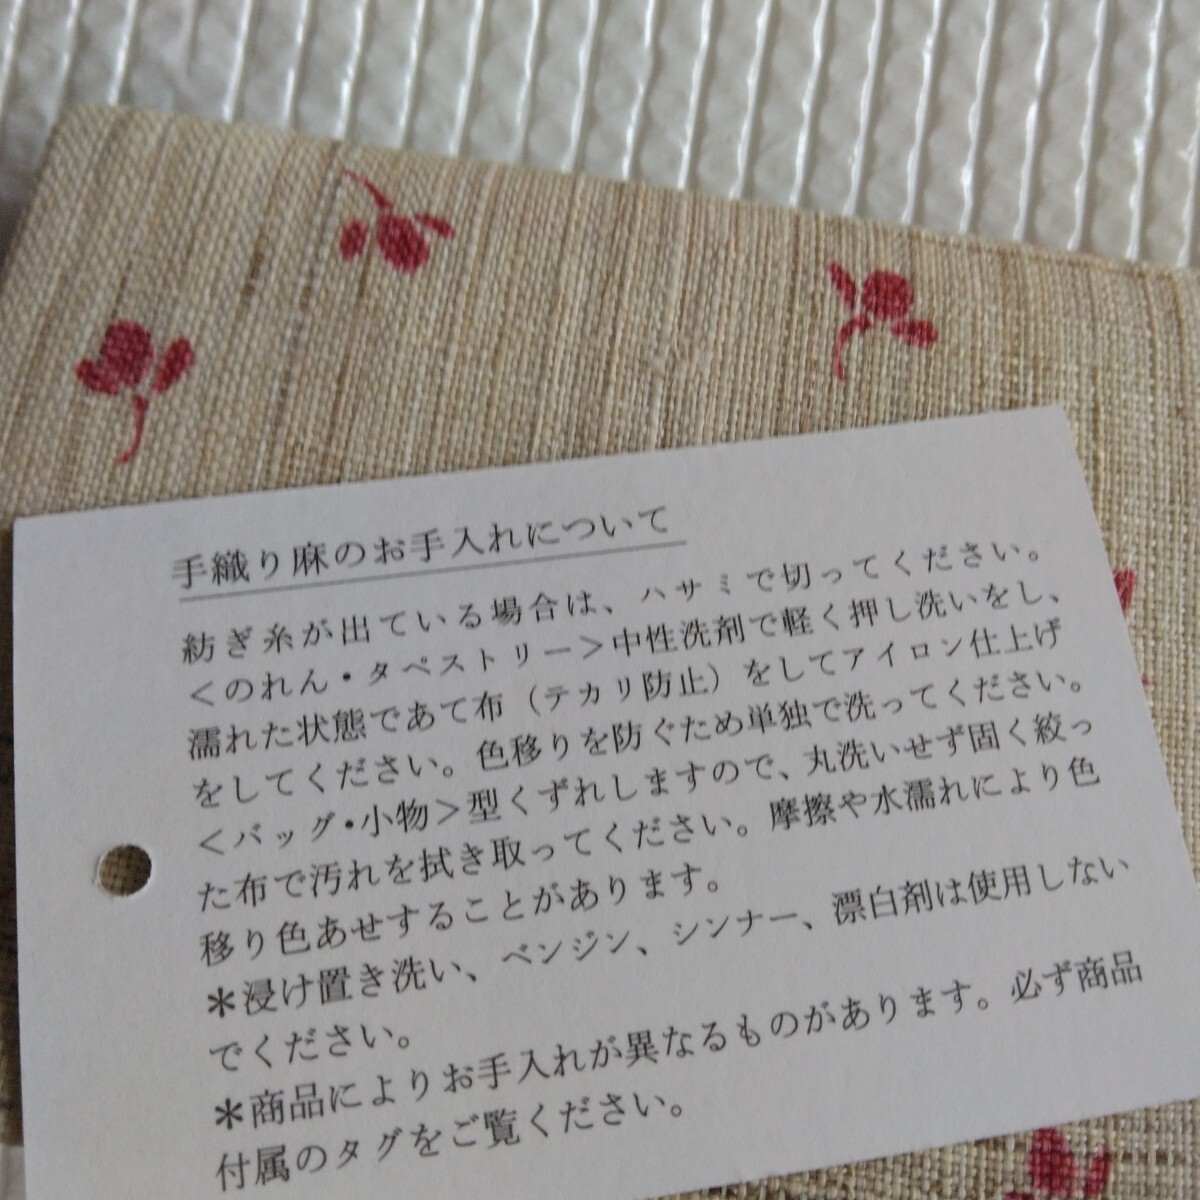 手織り麻のお手入れについて
紡ぎ糸が出ている場合は、ハサミで切ってください。
＜のれん・タペストリー＞中性洗剤で軽く押し洗いをし、
濡れた状態であて布（テカリ防止）をしてアイロン仕上げ
をしてください。色移りを防ぐため単独で洗ってください。
＜バッグ・小物＞型くずれしますので、丸洗いせず固く絞っ
た布で汚れを拭き取ってください。摩擦や水濡れにより色
移り色あせすることがあります。
＊浸け置き洗い、ベンジン、シンナー、漂白剤は使用しない
でください。
＊商品によりお手入れが異なるものがあります。必ず商品
付属のタグをご覧ください。